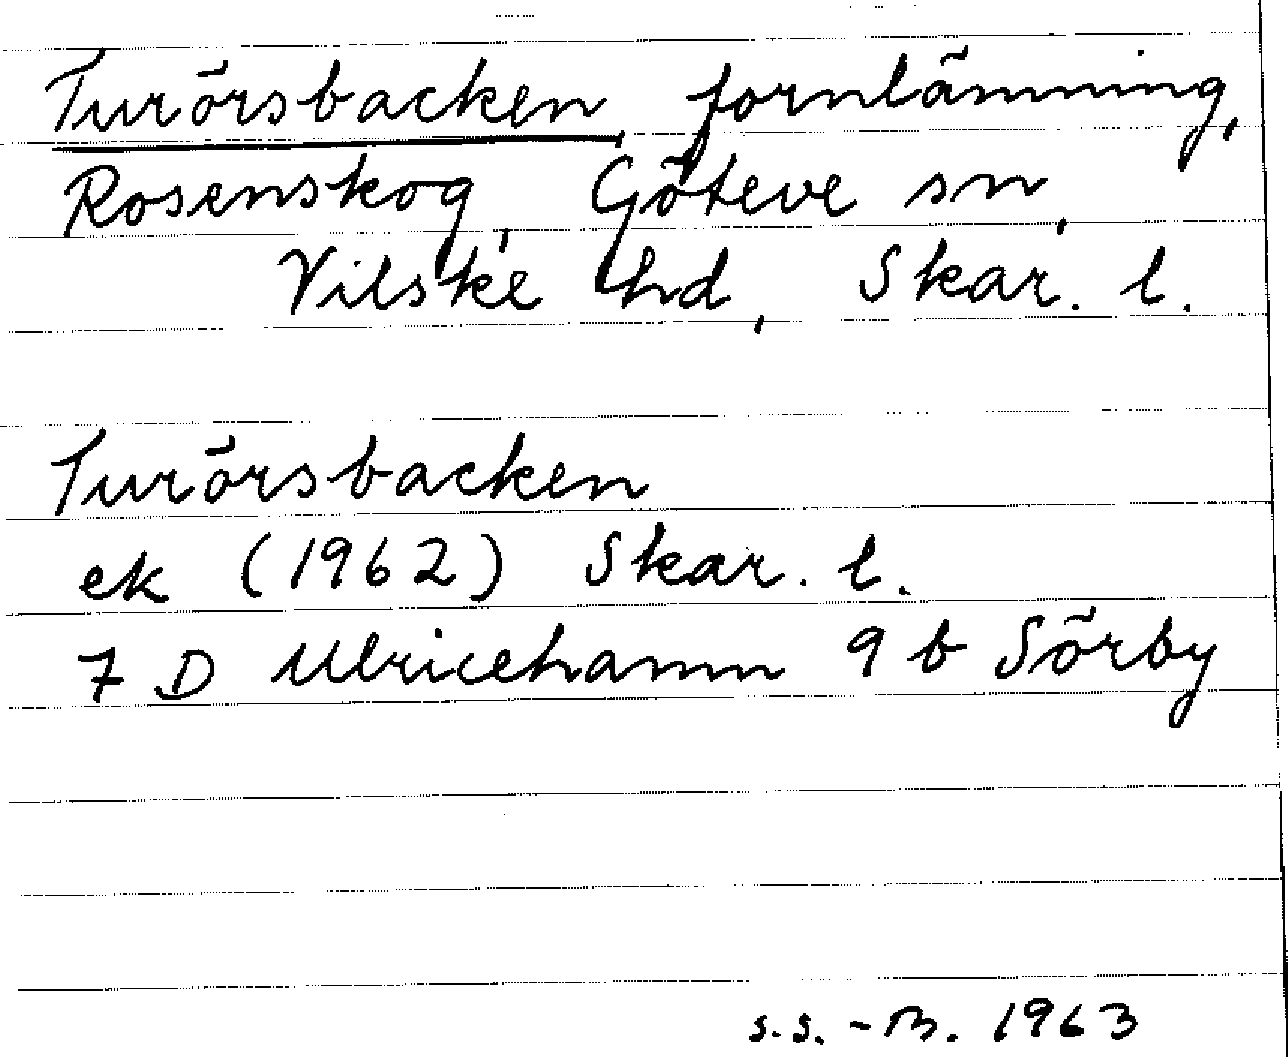 Turörsbacken, fornlämning,
Rosenskog, Göteve sn,
Vilske hd, Skar. l.
Turörsbacken
ek (1962) Skar. l.
7 D Ulricehamn 9 b Sörby
s.s. -B. 1963